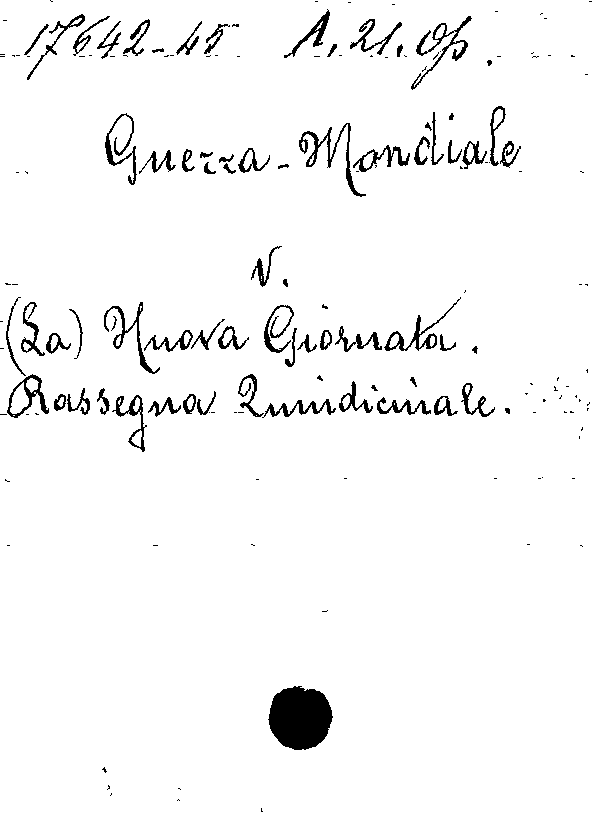 17642-45 A.21.Op.
Guerra-Mondiale
V.
(La) Nuova Giornata.
Rassegna Quindicinale.